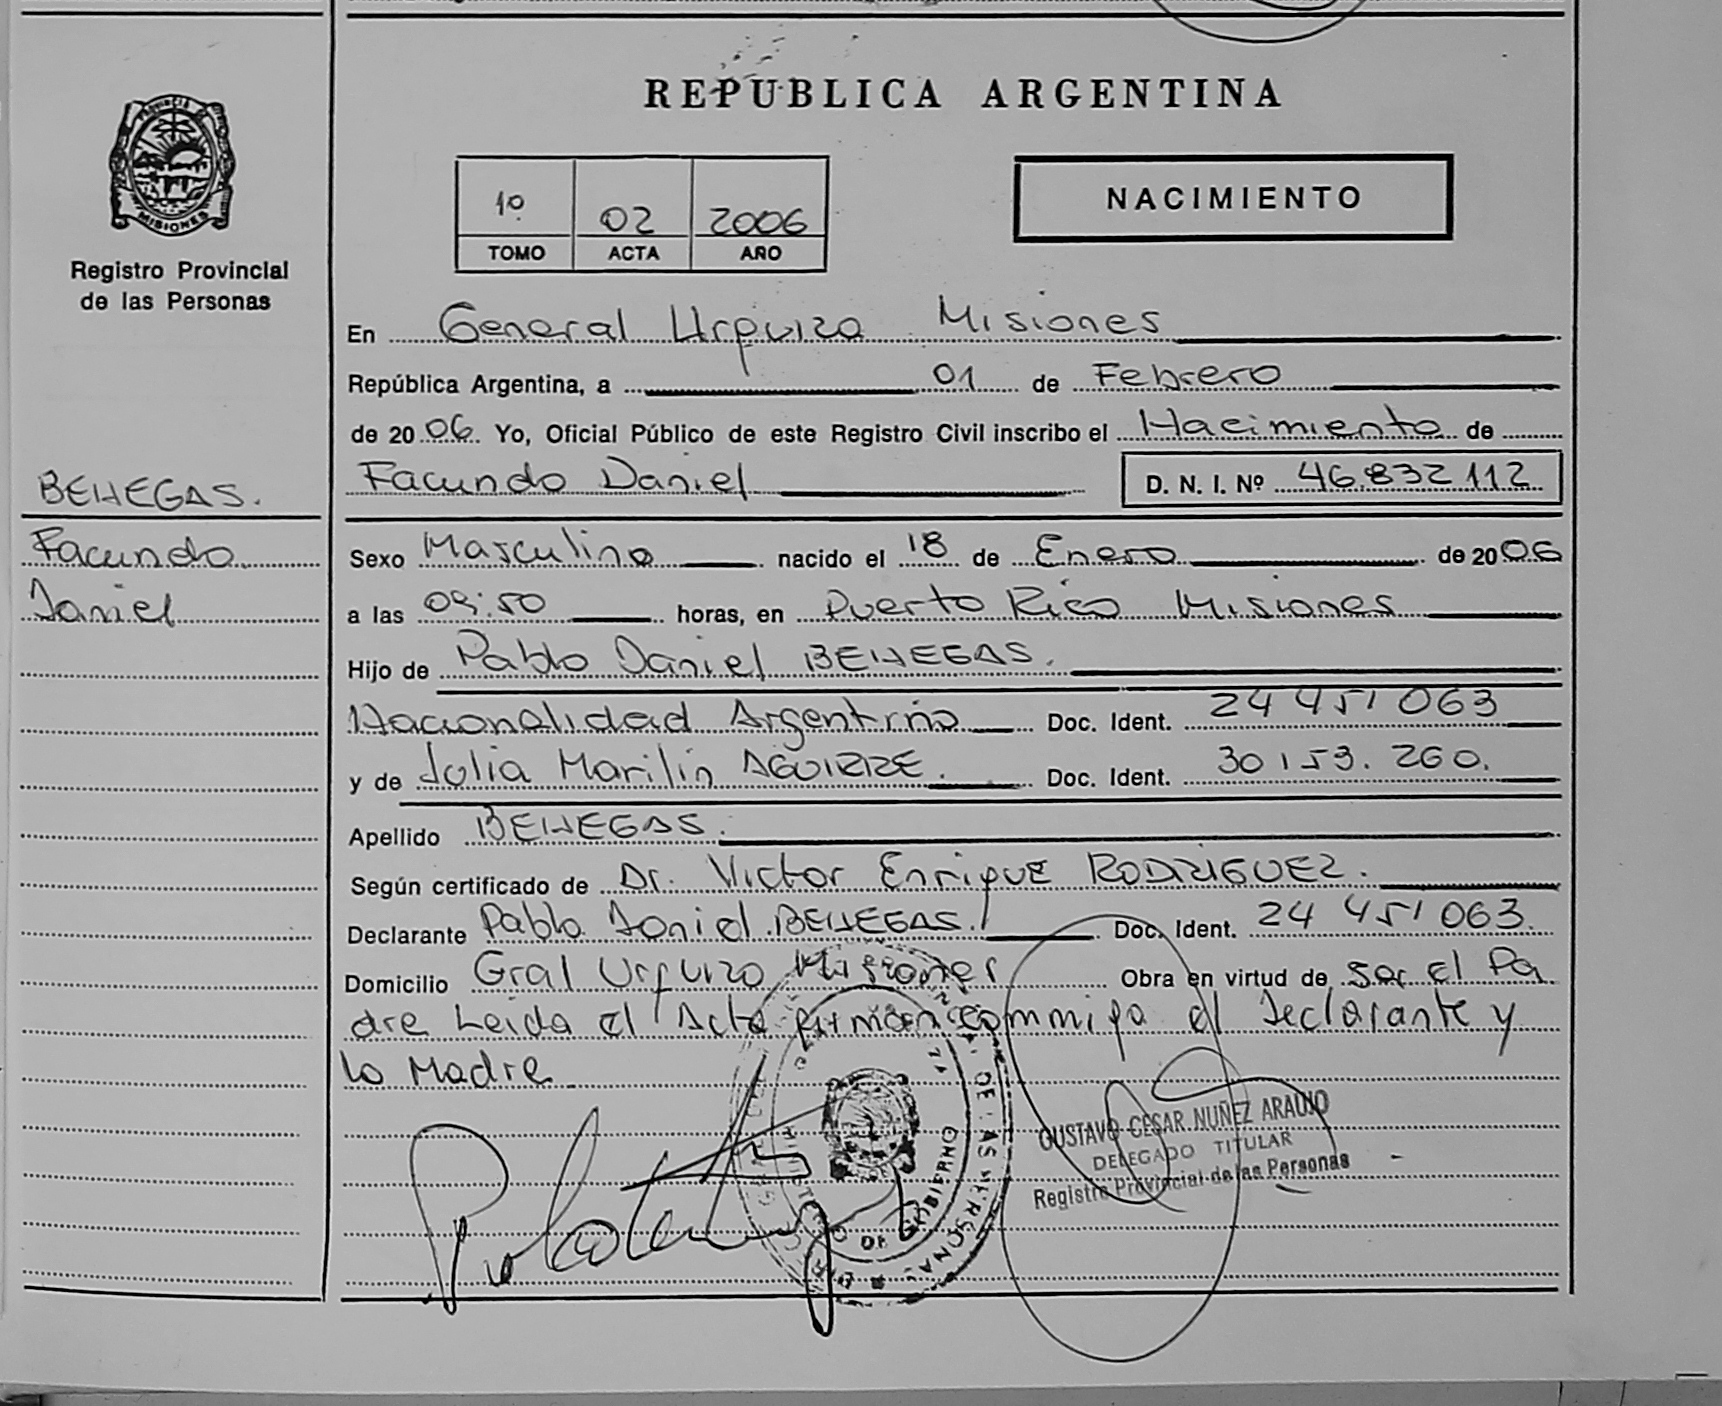 REPUBLICA ARGENTINA
PROVINCIA DE MISIONES
Registro Provincial
de las Personas
1º 02 2006
TOMO ACTA AÑO
NACIMIENTO
En General Urquiza Misiones
República Argentina, a 01 de Febrero
de 2006. Yo, Oficial Público de este Registro Civil inscribo el Nacimiento de
Facundo Daniel D. N. I. Nº 46.832.112
BENEGAS.
Facundo
Daniel
Sexo Masculino nacido el 18 de Enero de 2006
a las 09:50 horas, en Puerto Rico Misiones
Hijo de Pablo Daniel BENEGAS.
Nacionalidad Argentino Doc. Ident. 24 451 063
y de Julia Marilin AGUIRRE. Doc. Ident. 30 153. 260.
Apellido BENEGAS.
Según certificado de Dr. Victor Enrique RODRIGUEZ.
Declarante Pablo Daniel BENEGAS. Doc. Ident. 24 451 063.
Domicilio Gral Urquiza Misiones Obra en virtud de ser el Pa
dre Leida el Acta firman conmigo el Declarante y
la Madre
GUSTAVO CESAR NUÑEZ ARAUJO
DELEGADO TITULAR
Registro Provincial de las Personas